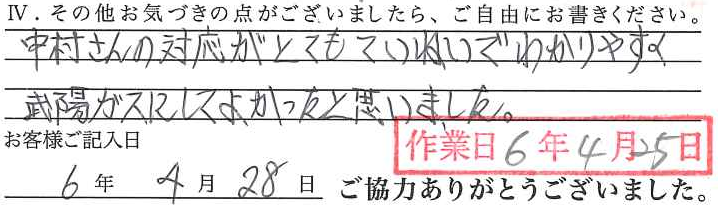 Ⅳ．その他お気づきの点がございましたら、ご自由にお書きください。
中村さんの対応がとてもていねいでわかりやすく
武陽ガスにしてよかったと思いました。
お客様ご記入日
作業日 6 年 4 月 25 日
6 年 4 月 28 日 ご協力ありがとうございました。